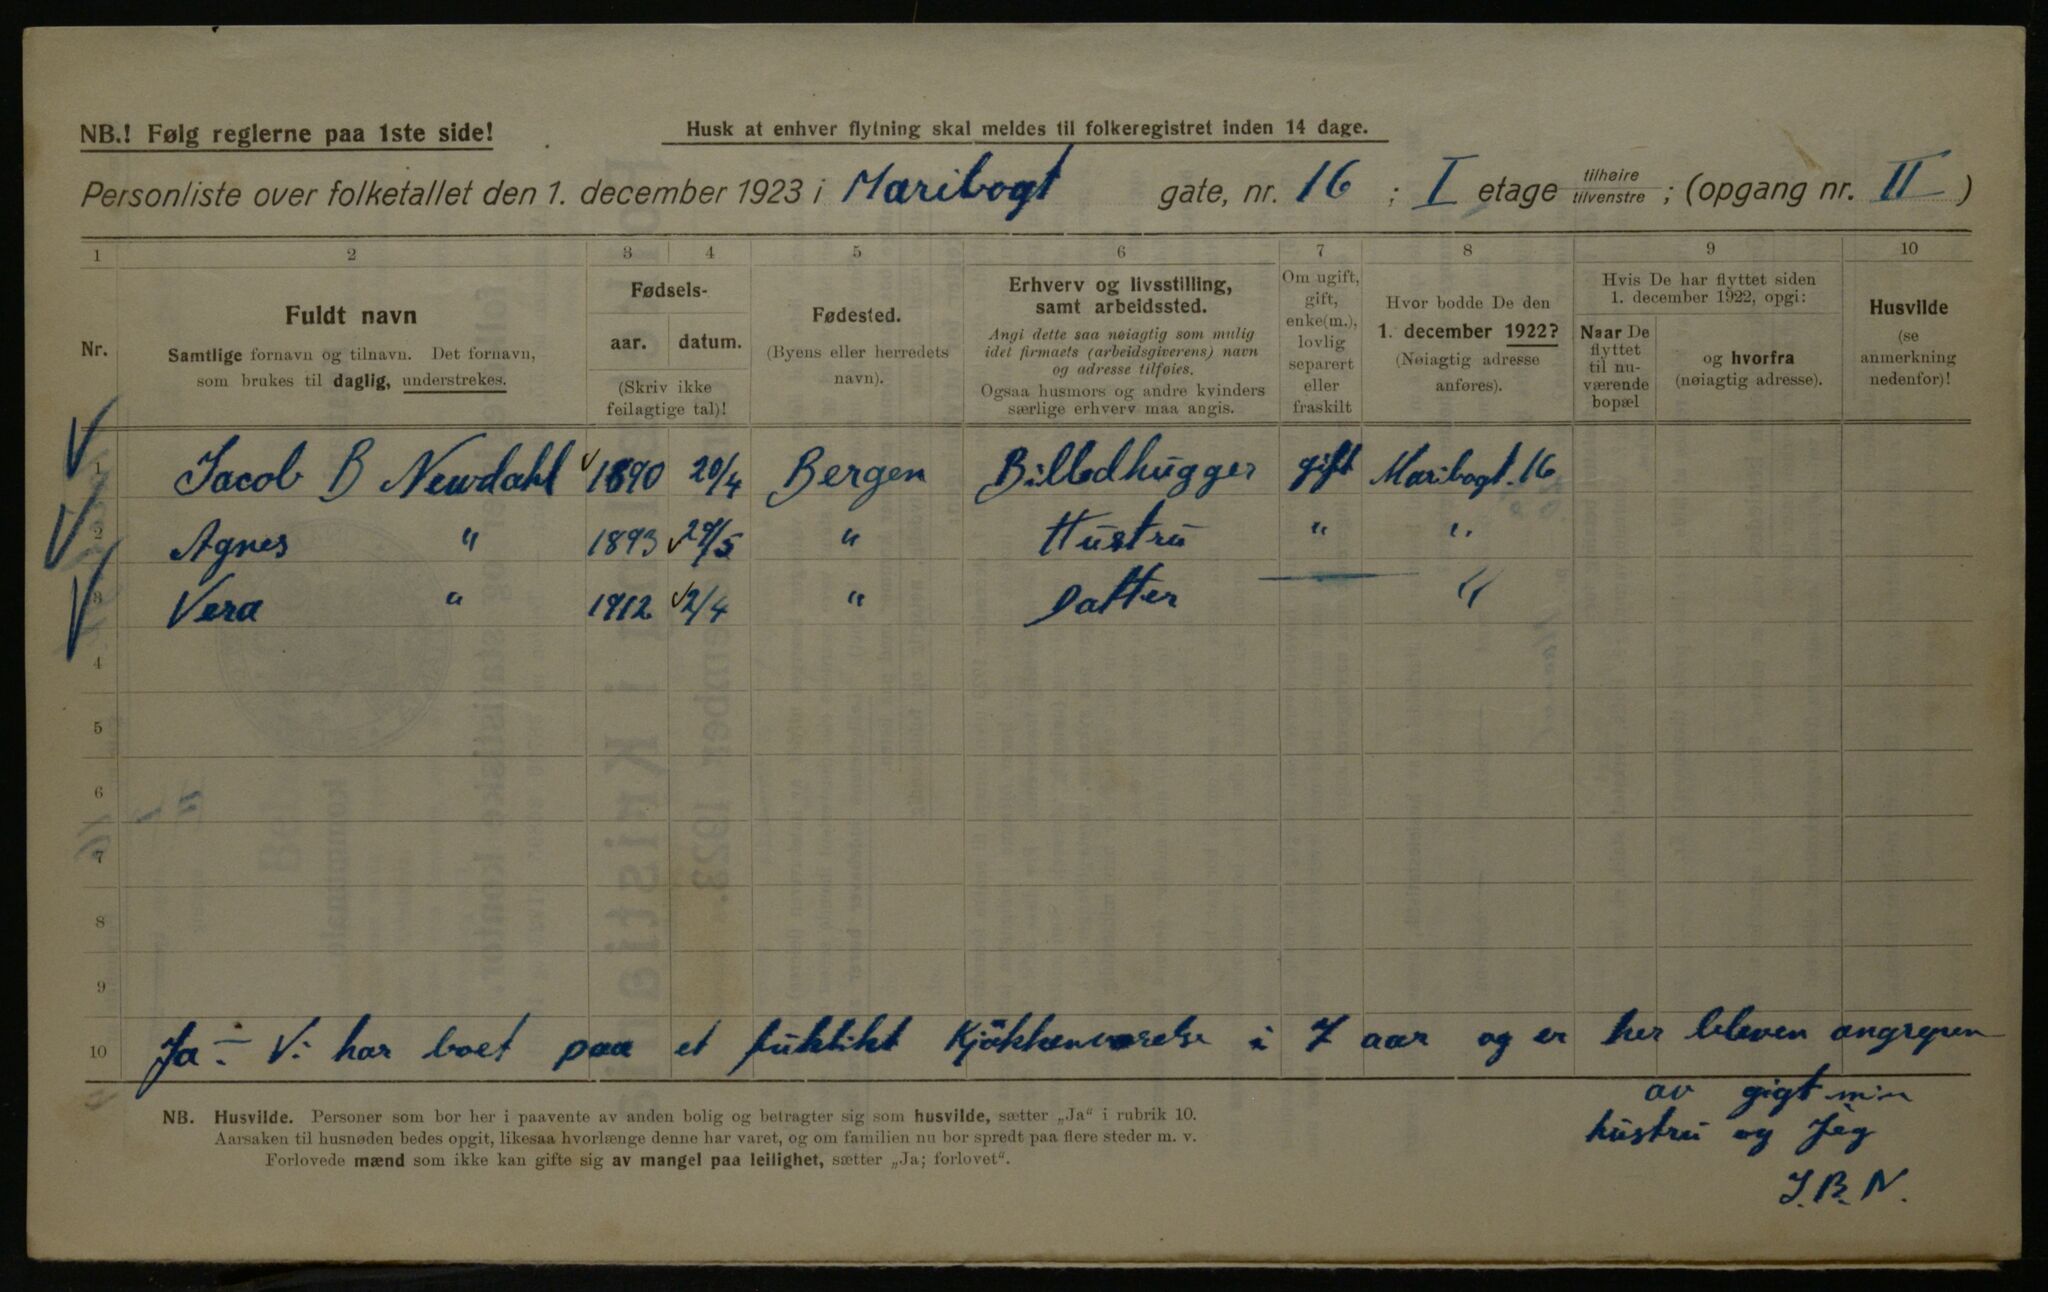 NB.! Følg reglerne paa 1ste side!
Husk at enhver flytning skal meldes til folkeregistret inden 14 dage.
Personliste over folketallet den 1. december 1923 i Maribogt gate, nr. 16 ; I etage tilhøire tilvenstre ; (opgang nr. II )
1 2 3 4 5 6 7 8 9 10
Nr.
Fuldt navn
Samtlige fornavn og tilnavn. Det fornavn,
som brukes til daglig, understrekes.
Fødsels-
aar. datum.
(Skriv ikke
feilagtige tal)!
Fødested.
(Byens eller herredets
navn).
Erhverv og livsstilling,
samt arbeidssted.
Angi dette saa nøiagtig som mulig
idet firmaets (arbeidsgiverens) navn
og adresse tilføies.
Ogsaa husmors og andre kvinders
særlige erhverv maa angis.
Om ugift,
gift,
enke(m.),
lovlig
separert
eller
fraskilt
Hvor bodde De den
1. december 1922?
(Nøiagtig adresse
anføres).
Hvis De har flyttet siden
1. december 1922, opgi:
Naar De
flyttet
til nu-
værende
bopæl
og hvorfra
(nøiagtig adresse).
Husvilde
(se
anmerkning
nedenfor)!
1 Jacob B Newdahl 1890 20/4 Bergen Billedhugger gift Maribogt. 16
2 Agnes " 1893 29/5 " Hustru " "
3 Vera " 1912 2/4 " Datter — "
4
5
6
7
8
9
10 Ja — Vi har boet paa et fuktikt Kjökkenværelse i 7 aar og er her bleven angrepen
av gigt min
hustru og Jeg
J. B. N.
NB. Husvilde. Personer som bor her i paavente av anden bolig og betragter sig som husvilde, sætter „Ja" i rubrik 10.
Aarsaken til husnøden bedes opgit, likesaa hvorlænge denne har varet, og om familien nu bor spredt paa flere steder m. v.
Forlovede mænd som ikke kan gifte sig av mangel paa leilighet, sætter „Ja; forlovet".